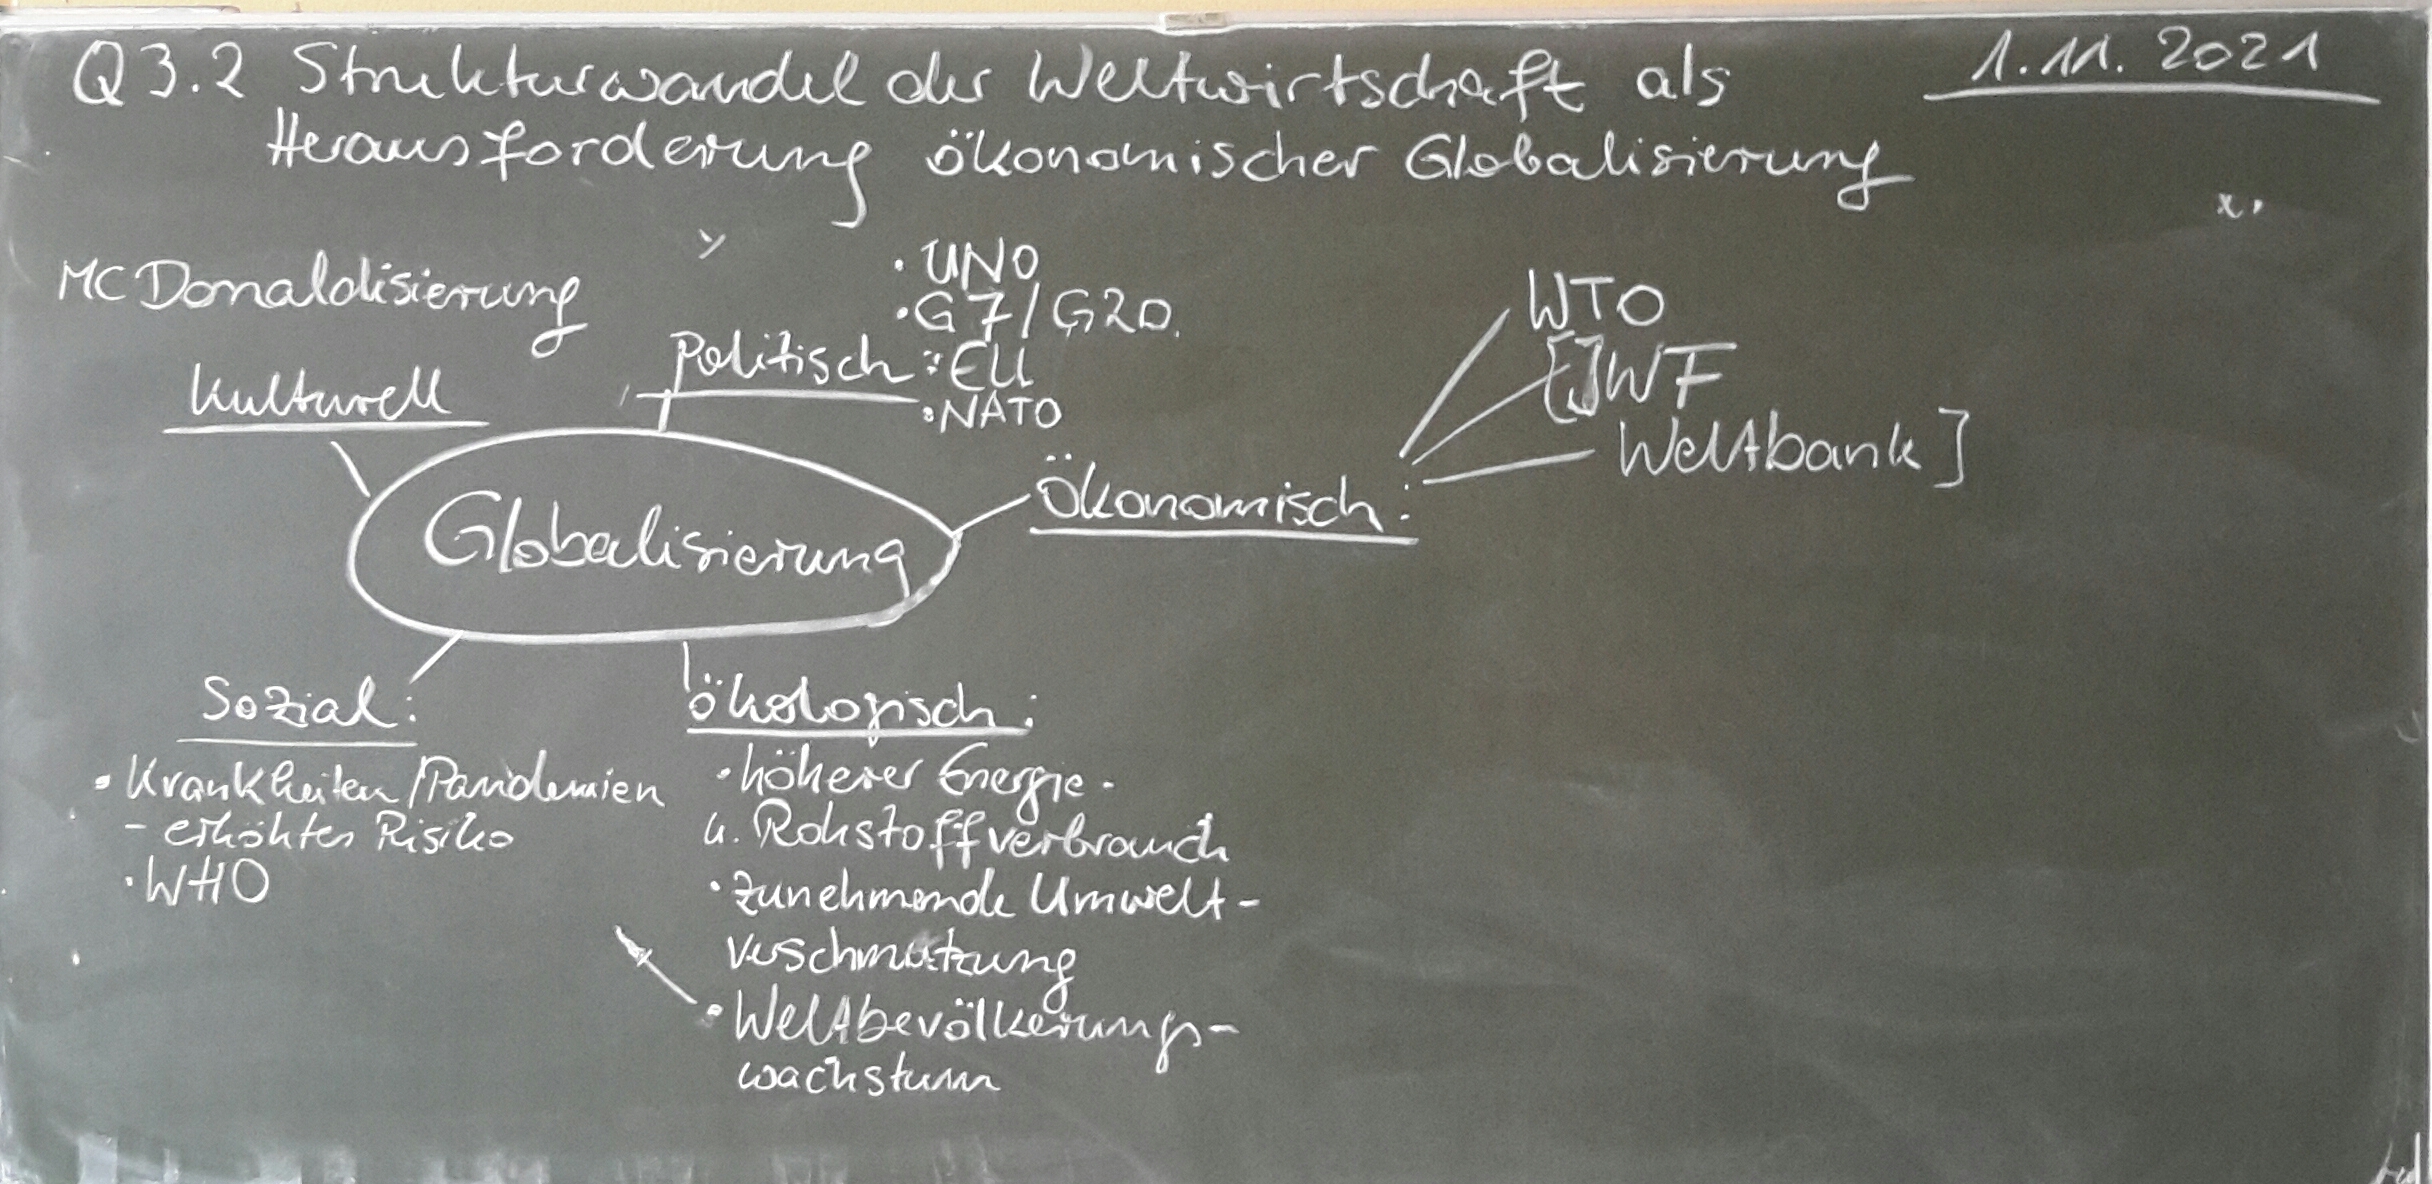 Q3.2 Strukturwandel der Weltwirtschaft als
Herausforderung ökonomischer Globalisierung
1.11.2021
MCDonaldisierung
kulturell
politisch:
• UNO
• G7/G20.
• EU
• NATO
Ökonomisch:
WTO
[IWF
Weltbank]
Globalisierung
Sozial:
• Krankheiten/Pandemien
- erhöhtes Risiko
• WHO
ökologisch:
• höherer Energie-
u. Rohstoffverbrauch
• zunehmende Umwelt-
verschmutzung
• Weltbevölkerungs-
wachstum